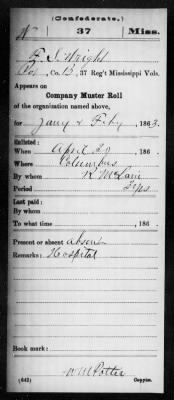 (Confederate.)
W 37 Miss.
F. J. Wright
Co. B, 37 Reg't Mississippi Vols.
Appears on
Company Muster Roll
of the organization named above,
for Jany & Feby, 1863.
Enlisted:
When April 20, 186
Where Columbus
By whom R McLain
Period 2 yrs
Last paid:
By whom
To what time , 186 .
Present or absent absent
Remarks: Hospital
Book mark:
(642) W M Potter Copyist.